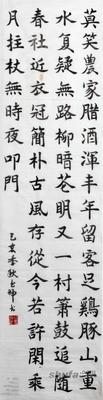 莫笑農家腊酒渾丰年留客足鷄豚山重
水复疑無路柳暗花明又一村簫鼓追随
春社近衣冠簡朴古風存從今若許閑乘
月拄杖無時夜叩門
己亥季秋